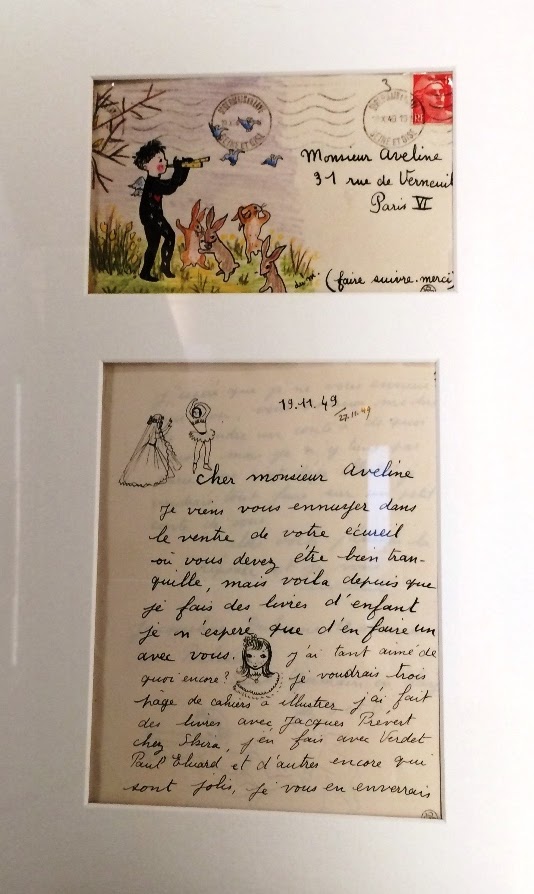 3
Monsieur Aveline
31 rue de Verneuil
Paris VI
(faire suivre. merci)
19.11.49
27.11.49
Cher monsieur Aveline
Je viens vous ennuyer dans
le ventre de votre écureil
où vous devez être bien tran-
quille, mais voila depuis que
je fais des livres d'enfant
je n'espéré que d'en faire un
avec vous. j'ai tant aimé de
quoi encore? je voudrais trois
page de cahiers à illustrer j'ai fait
des livres avec Jacques Prévert
chez , j'en fais avec Verdet
Paul Eluard et d'autres encore qui
sont jolis, je vous en enverrais